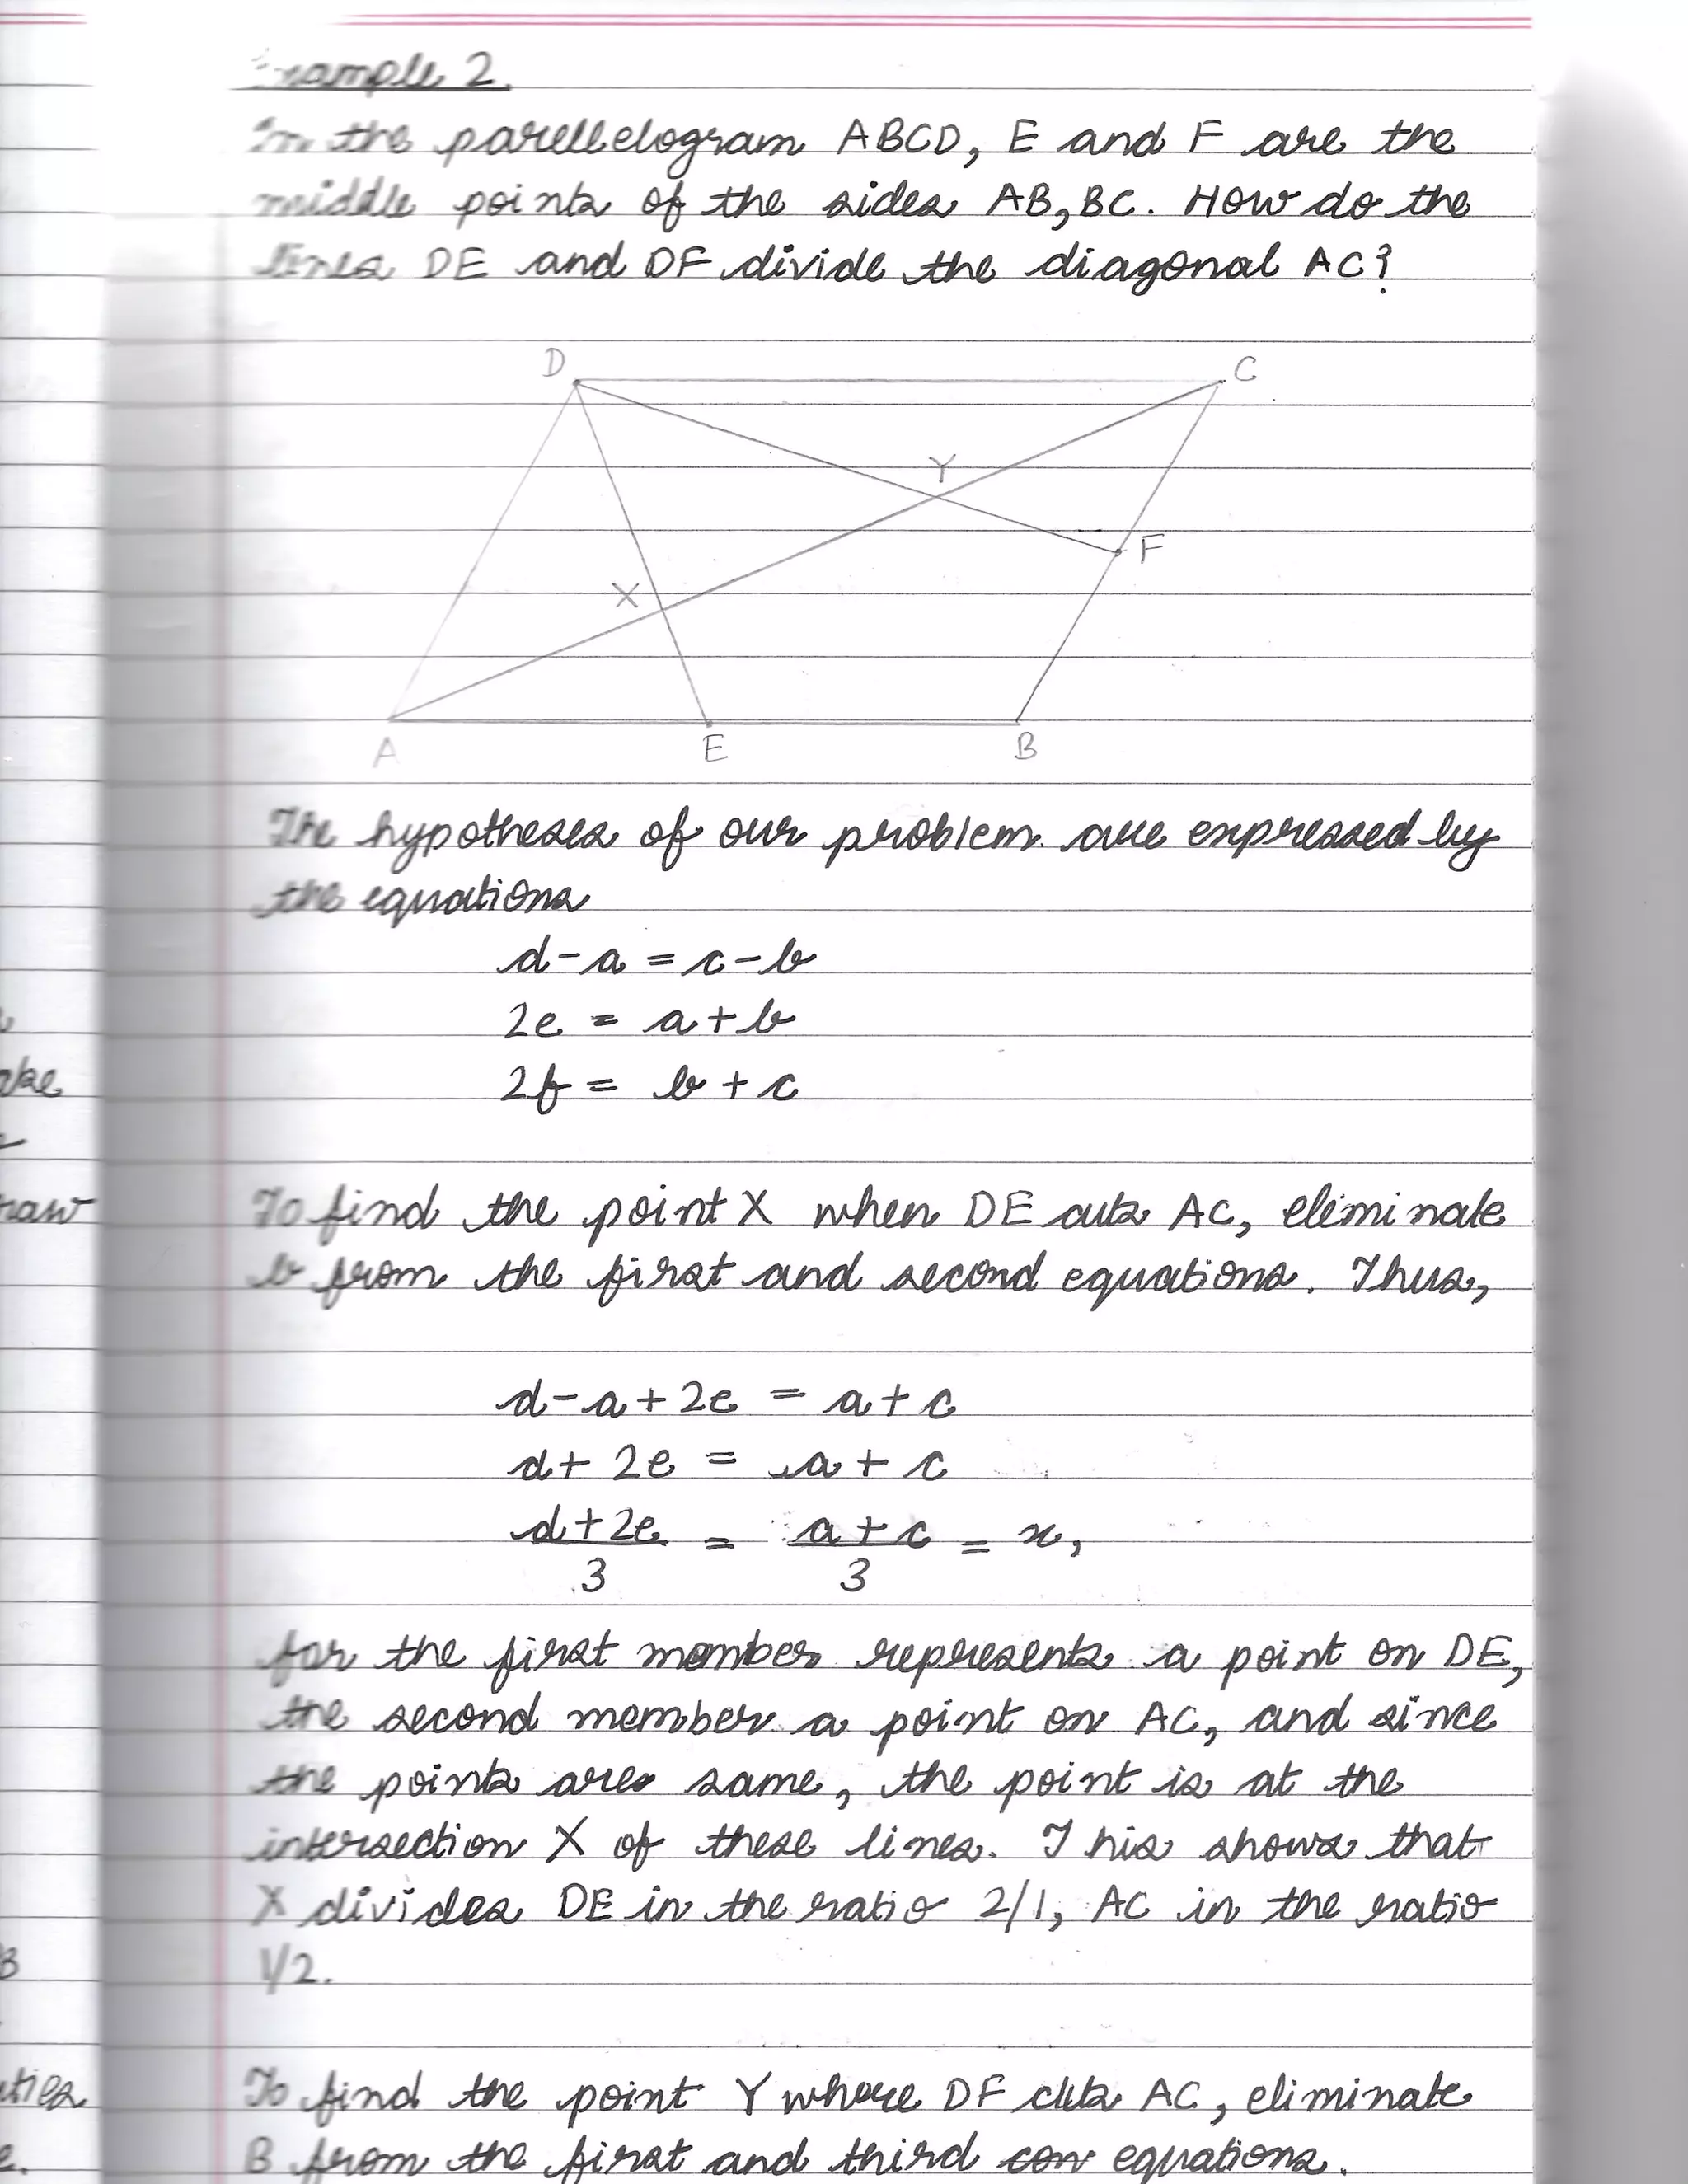 Example 2.
In the parellelogram ABCD, E and F are the
middle points of the sides AB, BC. How do the
lines DE and DF divide the diagonal AC?
D
C
Y
F
X
A
E
B
The hypotheses of our problem are expressed by
the equations
d - a = c - b
2e = a + b
2f = b + c
To find the point X when DE cuts AC, eliminate
b from the first and second equations. Thus,
d - a + 2e = a + c
d + 2e = a + c
d + 2e / 3 = a + c / 3 = x,
for the first member represents a point on DE,
the second member a point on AC, and since
the points are same, the point is at the
intersection X of these lines. This shows that
X divides DE in the ratio 2/1, AC in the ratio
1/2.
To find the point Y where DF cuts AC, eliminate
B from the first and third equations.
raw
B